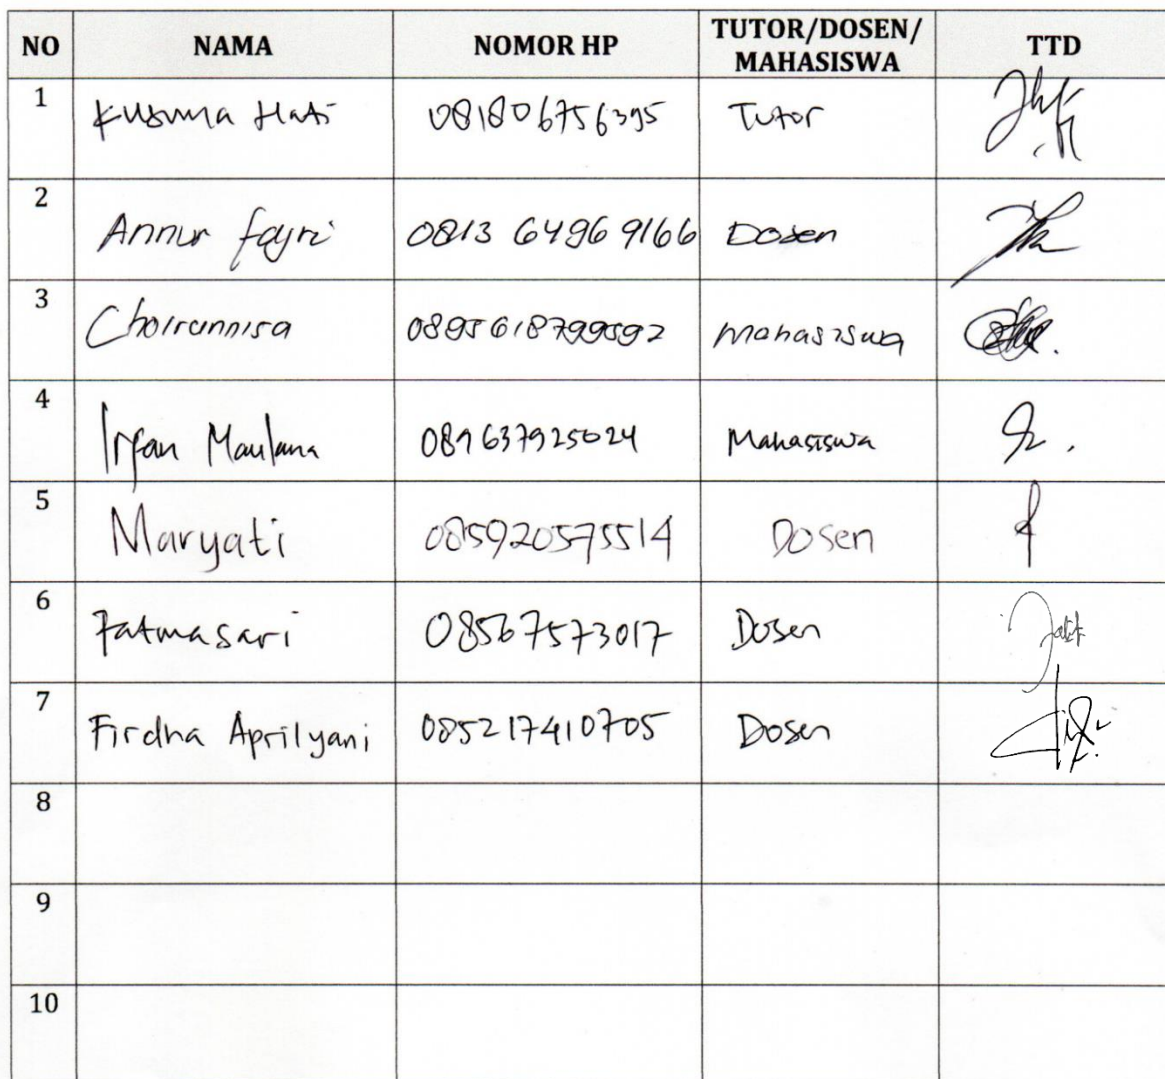 NO NAMA NOMOR HP TUTOR/DOSEN/ TTD
MAHASISWA
1 Kusuma Hati 081806756395 Tutor
2 Annur fajri 0813 6496 9166 Dosen
3 Choirunnisa 0895618799592 mahasiswa
4 Irfan Maulana 089637925024 Mahasiswa
5 Maryati 085920575514 Dosen
6 Fatmasari 08567573017 Dosen
7 Firdha Aprilyani 085217410705 Dosen
8
9
10